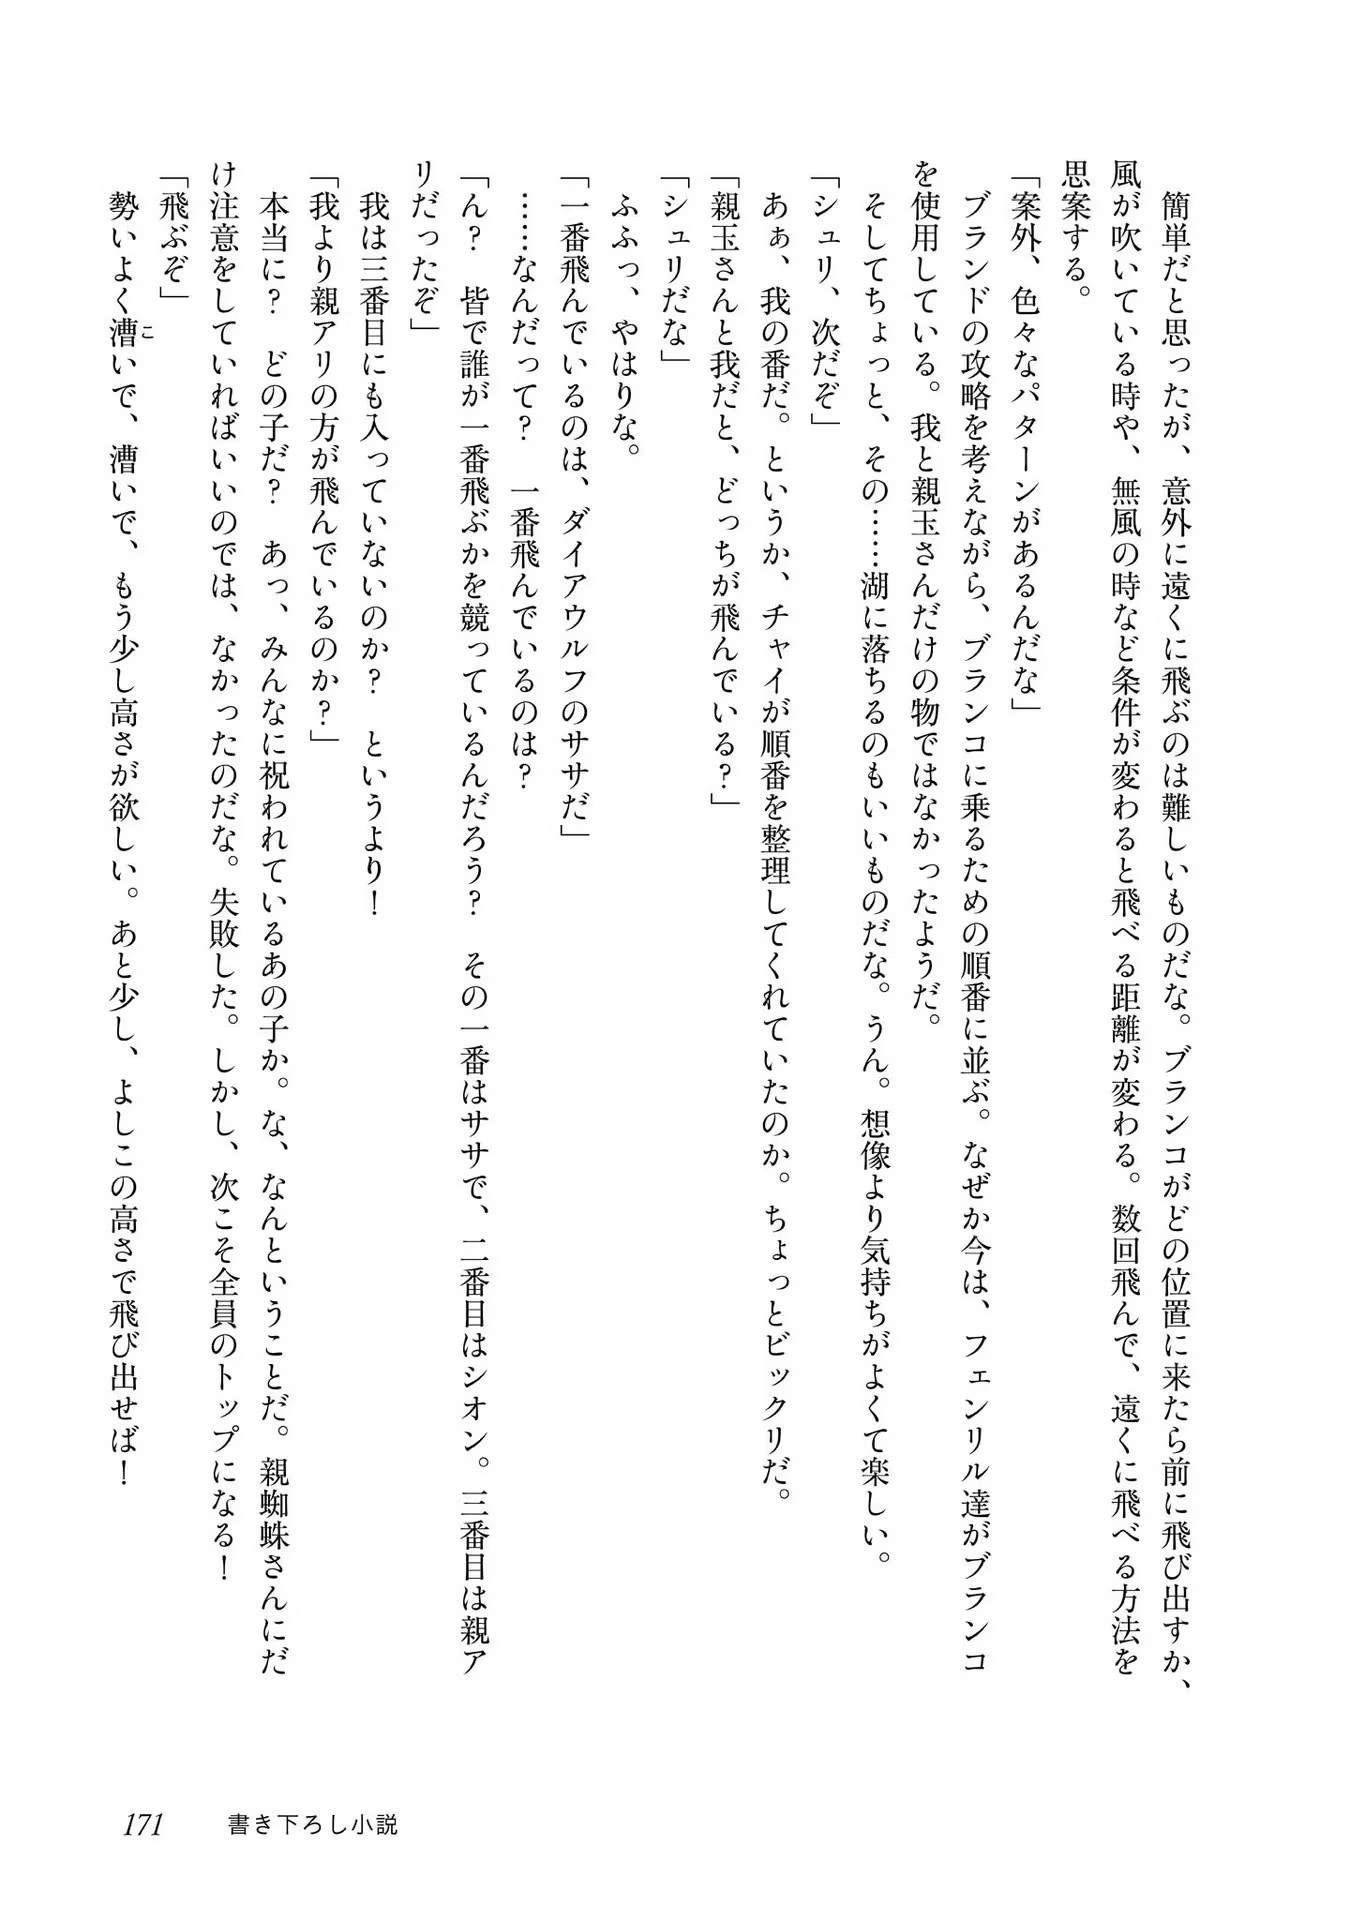 簡単だと思ったが、意外に遠くに飛ぶのは難しいものだな。ブランコがどの位置に来たら前に飛び出すか、
風が吹いている時や、無風の時など条件が変わると飛べる距離が変わる。数回飛んで、遠くに飛べる方法を
思案する。
「案外、色々なパターンがあるんだな」
ブランドの攻略を考えながら、ブランコに乗るための順番に並ぶ。なぜか今は、フェンリル達がブランコ
を使用している。我と親玉さんだけの物ではなかったようだ。
そしてちょっと、その……湖に落ちるのもいいものだな。うん。想像より気持ちがよくて楽しい。
「シュリ、次だぞ」
あぁ、我の番だ。というか、チャイが順番を整理してくれていたのか。ちょっとビックリだ。
「親玉さんと我だと、どっちが飛んでいる？」
「シュリだな」
ふふっ、やはりな。
「一番飛んでいるのは、ダイアウルフのササだ」
……なんだって？　一番飛んでいるのは？
「ん？　皆で誰が一番飛ぶかを競っているんだろう？　その一番はササで、二番目はシオン。三番目は親ア
リだったぞ」
我は三番目にも入っていないのか？　というより！
「我より親アリの方が飛んでいるのか？」
本当に？　どの子だ？　あっ、みんなに祝われているあの子か。な、なんということだ。親蜘蛛さんにだ
け注意をしていればいいのでは、なかったのだな。失敗した。しかし、次こそ全員のトップになる！
「飛ぶぞ」
勢いよく漕いで、漕いで、もう少し高さが欲しい。あと少し、よしこの高さで飛び出せば！
こ
171　書き下ろし小説